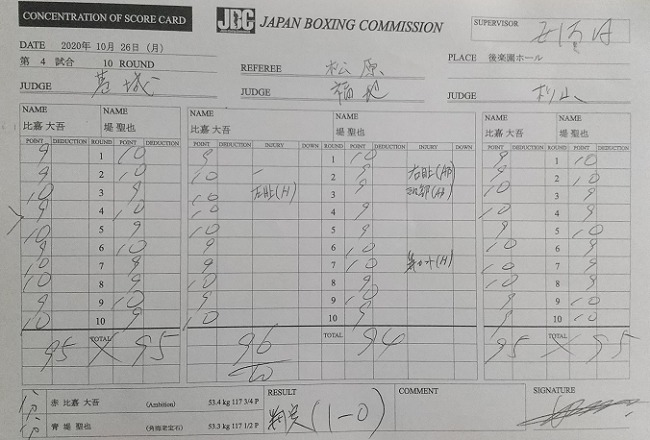 CONCENTRATION OF SCORE CARD
JBC JAPAN BOXING COMMISSION
SUPERVISOR
DATE 2020年 10月 26日 (月)
PLACE 後楽園ホール
第 4 試合 10 ROUND
REFEREE 松原
JUDGE 葛城
JUDGE 福地
JUDGE 杉山
NAME NAME NAME NAME NAME NAME
比嘉 大吾 堤 聖也 比嘉 大吾 堤 聖也 比嘉 大吾 堤 聖也
POINT DEDUCTION ROUND POINT DEDUCTION POINT DEDUCTION INJURY DOWN ROUND POINT DEDUCTION INJURY DOWN POINT DEDUCTION ROUND POINT DEDUCTION
9 1 10 9 1 10 9 1 10
9 2 10 10 2 9 9 2 10
10 3 9 10 3 9 10 3 9
9 4 10 10 4 9 10 4 9
10 5 9 10 5 9 10 5 9
9 6 10 9 6 10 9 6 10
10 7 9 9 7 10 10 7 9
10 8 9 10 8 9 10 8 9
9 9 10 9 9 10 9 9 10
10 10 9 10 10 9 9 10 10
95 TOTAL 95 96 TOTAL 94 95 TOTAL 95
赤 比嘉 大吾 (Ambition) 53.4 kg 117 3/4 P
青 堤 聖也 (角海老宝石) 53.3 kg 117 1/2 P
RESULT
(1-0)
COMMENT
SIGNATURE